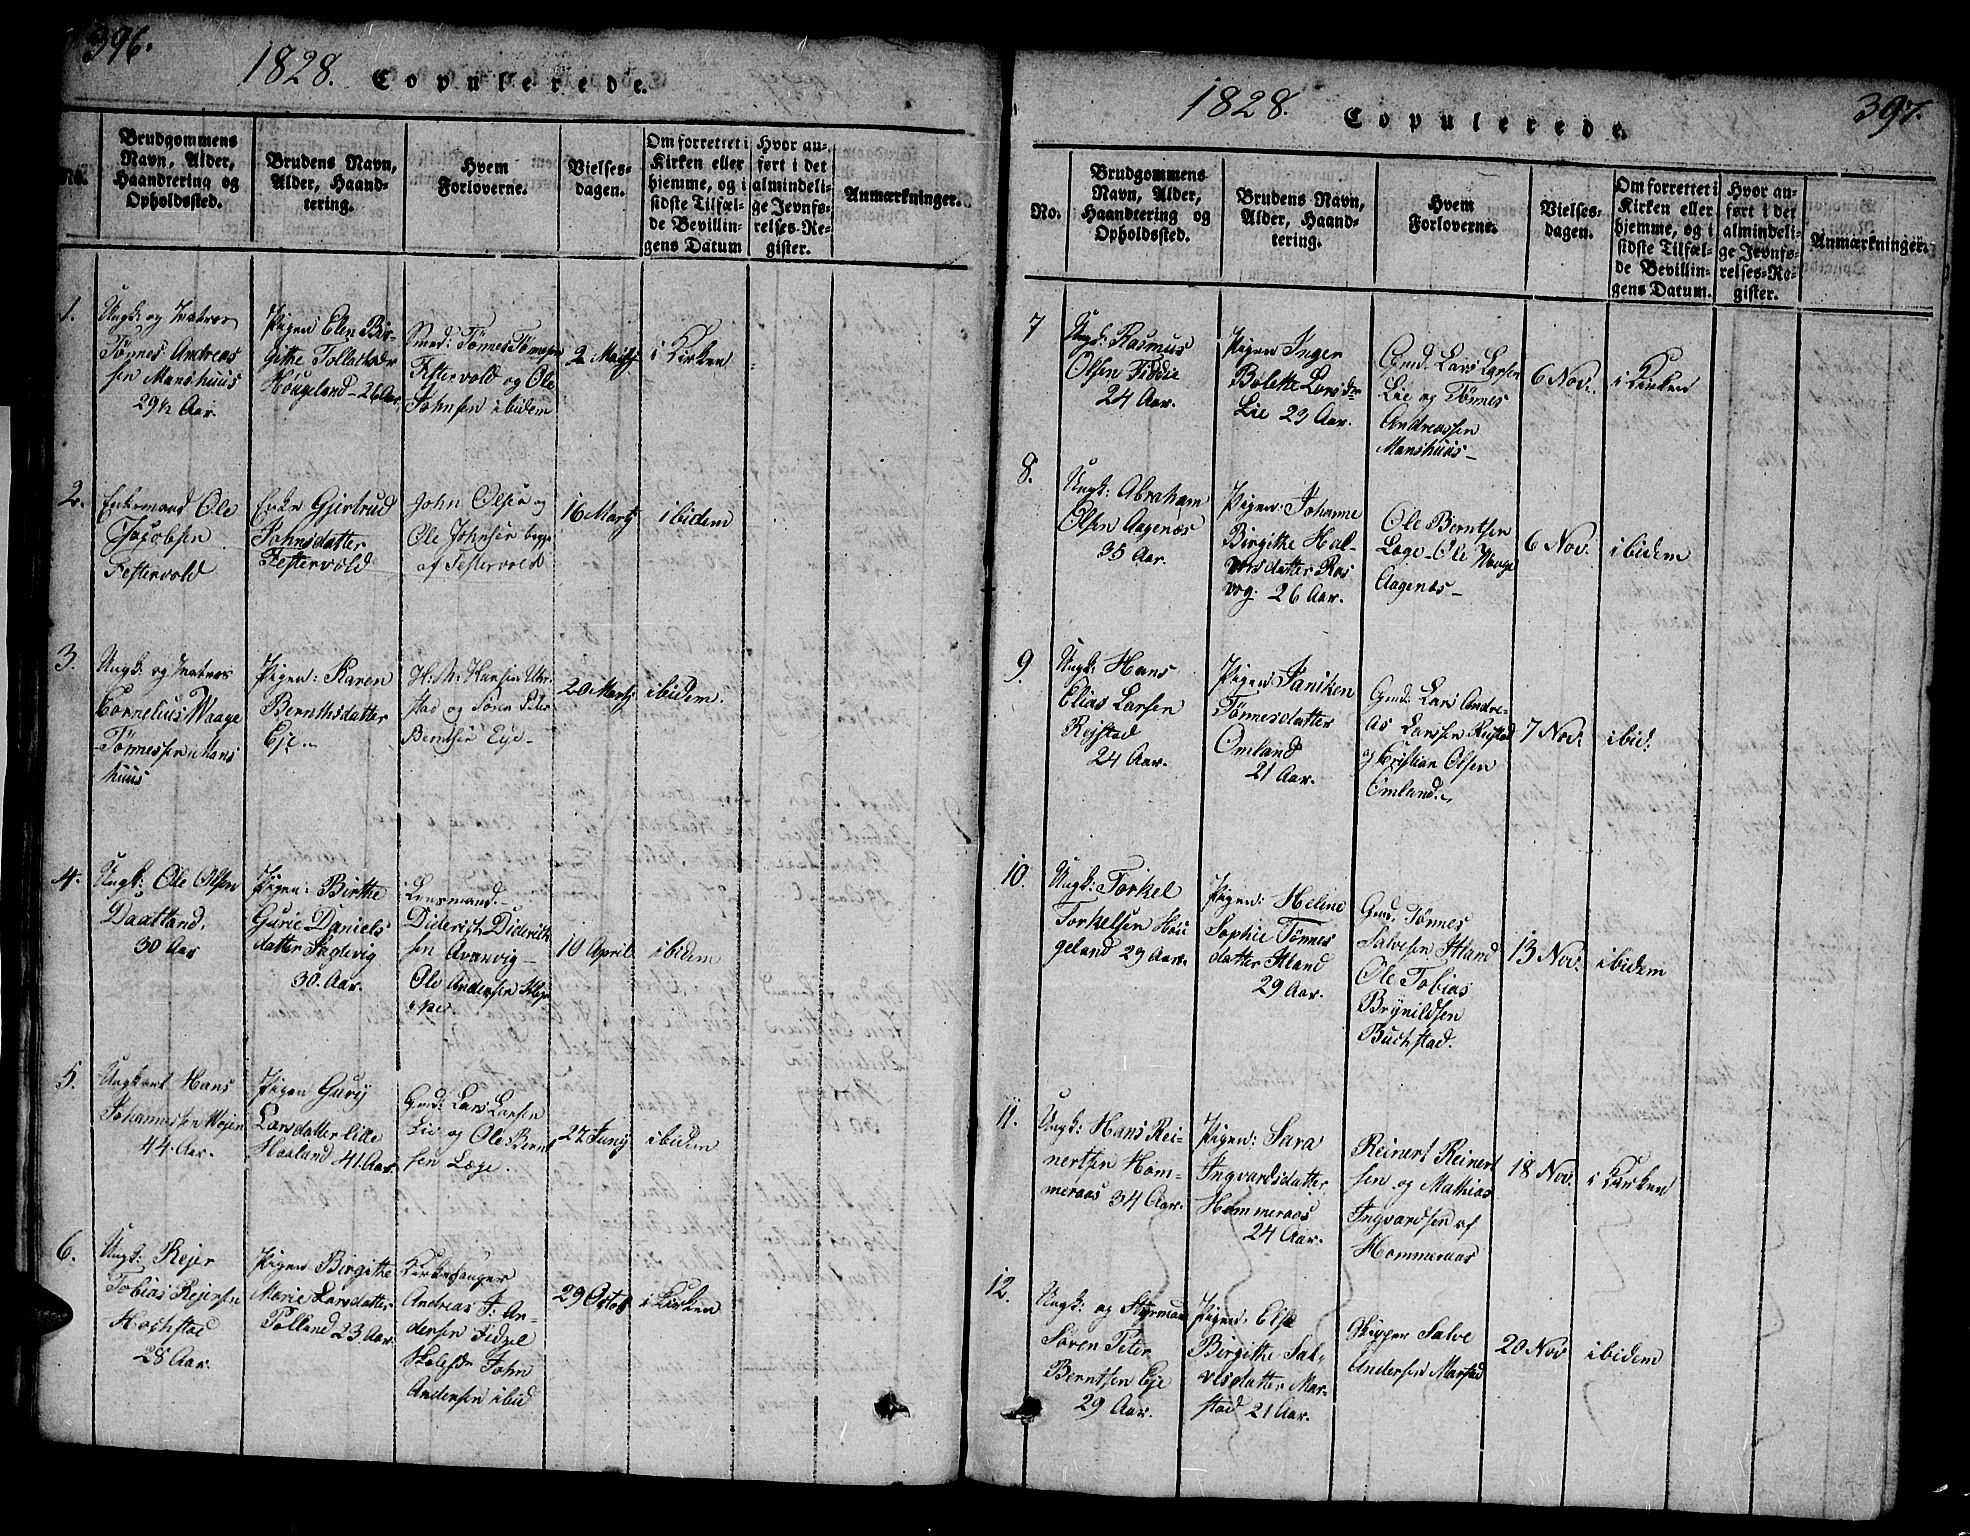 396.
1828. Copulerede.
No.
Brudgommens Navn, Alder, Haandtering og Opholdssted.
Brudens Navn, Alder, Haandtering.
Hvem Forloverne.
Vielsesdagen.
Om forrettet i Kirken eller hjemme, og i sidste Tilfælde Bevillingens Datum
Hvor anført i det almindelige Jevnførelses-Register.
Anmærkninger.
1.
Ungk: og Matros
Tønnes Andreas
sen Manshuus
29½ Aar.
Pigen Elen Bir-
githe Tollaksdr
Hougeland - 26 Aar
Tønnes Tønnesen
Festervold og Ole
Johnsen ibidem
2 Martj
i Kirken
2.
Enkemand Ole
Jacobsen
Festervold
Enke Gjertrud
Johnsdatter
Festervold
John Olsen og
Ole Johnsen begge
af Festervold
16 Martj
ibidem
3.
Ungk: og Matros
Cornelius Waage
Tønnessen Mans
huus
Pigen: Karen
Bernthsdatter
Eje.
H: M: Hansen Uhr
stad og Søren Peter
Berntsen Eje -
20 Martj
ibidem.
4.
Ungk: Ole Olsen
Daatland.
30 Aar
Pigen: Birthe
Gurie Daniels
datter Sagevig
30. Aar.
Lensmand
Diderich Diderich
sen Avanvig -
Ole Andersen
10 April
ibidem
5.
Ungkarl Hans
Johannessen Mojen
44. Aar.
Pigen Gurij
Larsdatter lille
Haaland 41 Aar
Gmd: Lars Larsen
Lie og Ole Bernt
sen Læge.
27 Junij
ibidem
6.
Ungk: Rejer
Tobias Rejersen
Hochstad
28 Aar.
Pigen Birgithe
Marie Larsdatter
Polland 23 Aar.
Kirkesanger
Andreas J: An-
dersen Fidzel
John
Andersen ibid
29 Octob
i Kirken
1828. Copulerede.
397.
No.
Brudgommens Navn, Alder, Haandtering og Opholdssted.
Brudens Navn, Alder, Haandtering.
Hvem Forloverne.
Vielsesdagen.
Om forrettet i Kirken eller hjemme, og i sidste Tilfælde Bevillingens Datum.
Hvor anført i det almindelige Jevnførelses-Register.
Anmærkninger.
7
Ungk: Rasmus
Olsen Fiddie
24 Aar.
Pigen Inger
Bolette Larsdr
Lie 23 Aar.
Gmd. Lars Larsen
Lie og Tønnes
Andreassen
Manshuus -
6 Nov:
i Kirken
8.
Ungk: Abraham
Olsen Aagenæs
35 Aar.
Pigen: Johanne
Birgithe Hal-
vorsdatter Ros
vog. 26 Aar.
Ole Berntsen
Læge - Ole
Aagenæs -
6 Nov.
ibidem
9.
Ungk: Hans
Elias Larsen
Rejstad
24 Aar.
Pigen Janiken
Tønnesdatter
Omland
21 Aar.
Gmd: Lars Andre-
as Larsen Rejstad
og Christian Olsen
Omland.
7 Nov:
ibid:
10.
Ungk: Torkel
Torkelsen Hou
geland 29 Aar.
Pigen: Helene
Sophie Tønnes
datter Atland
29 Aar.
Gmd. Tønnes
Salvesen Atland
Ole Tobias
Brynildsen
Buchstad.
13 Nov:
ibidem
11.
Ungk: Hans Rei-
nertsen Hom-
meraas 34 Aar.
Pigen: Sara
Ingvardsdatter
Hommeraas
24 Aar.
Reinert Reinert
sen og Mathias
Ingvardsen af
Hommeraas
18 Nov.
i Kirken
12.
Ungk: og Styrman
Søren Peter
Berntsen Eje
29 Aar.
Pigen: Else
Birgithe Sal-
vesdatter Mar-
stad 21 Aar.
Skipper Salve
Andersen Marstad
20 Nov
ibidem